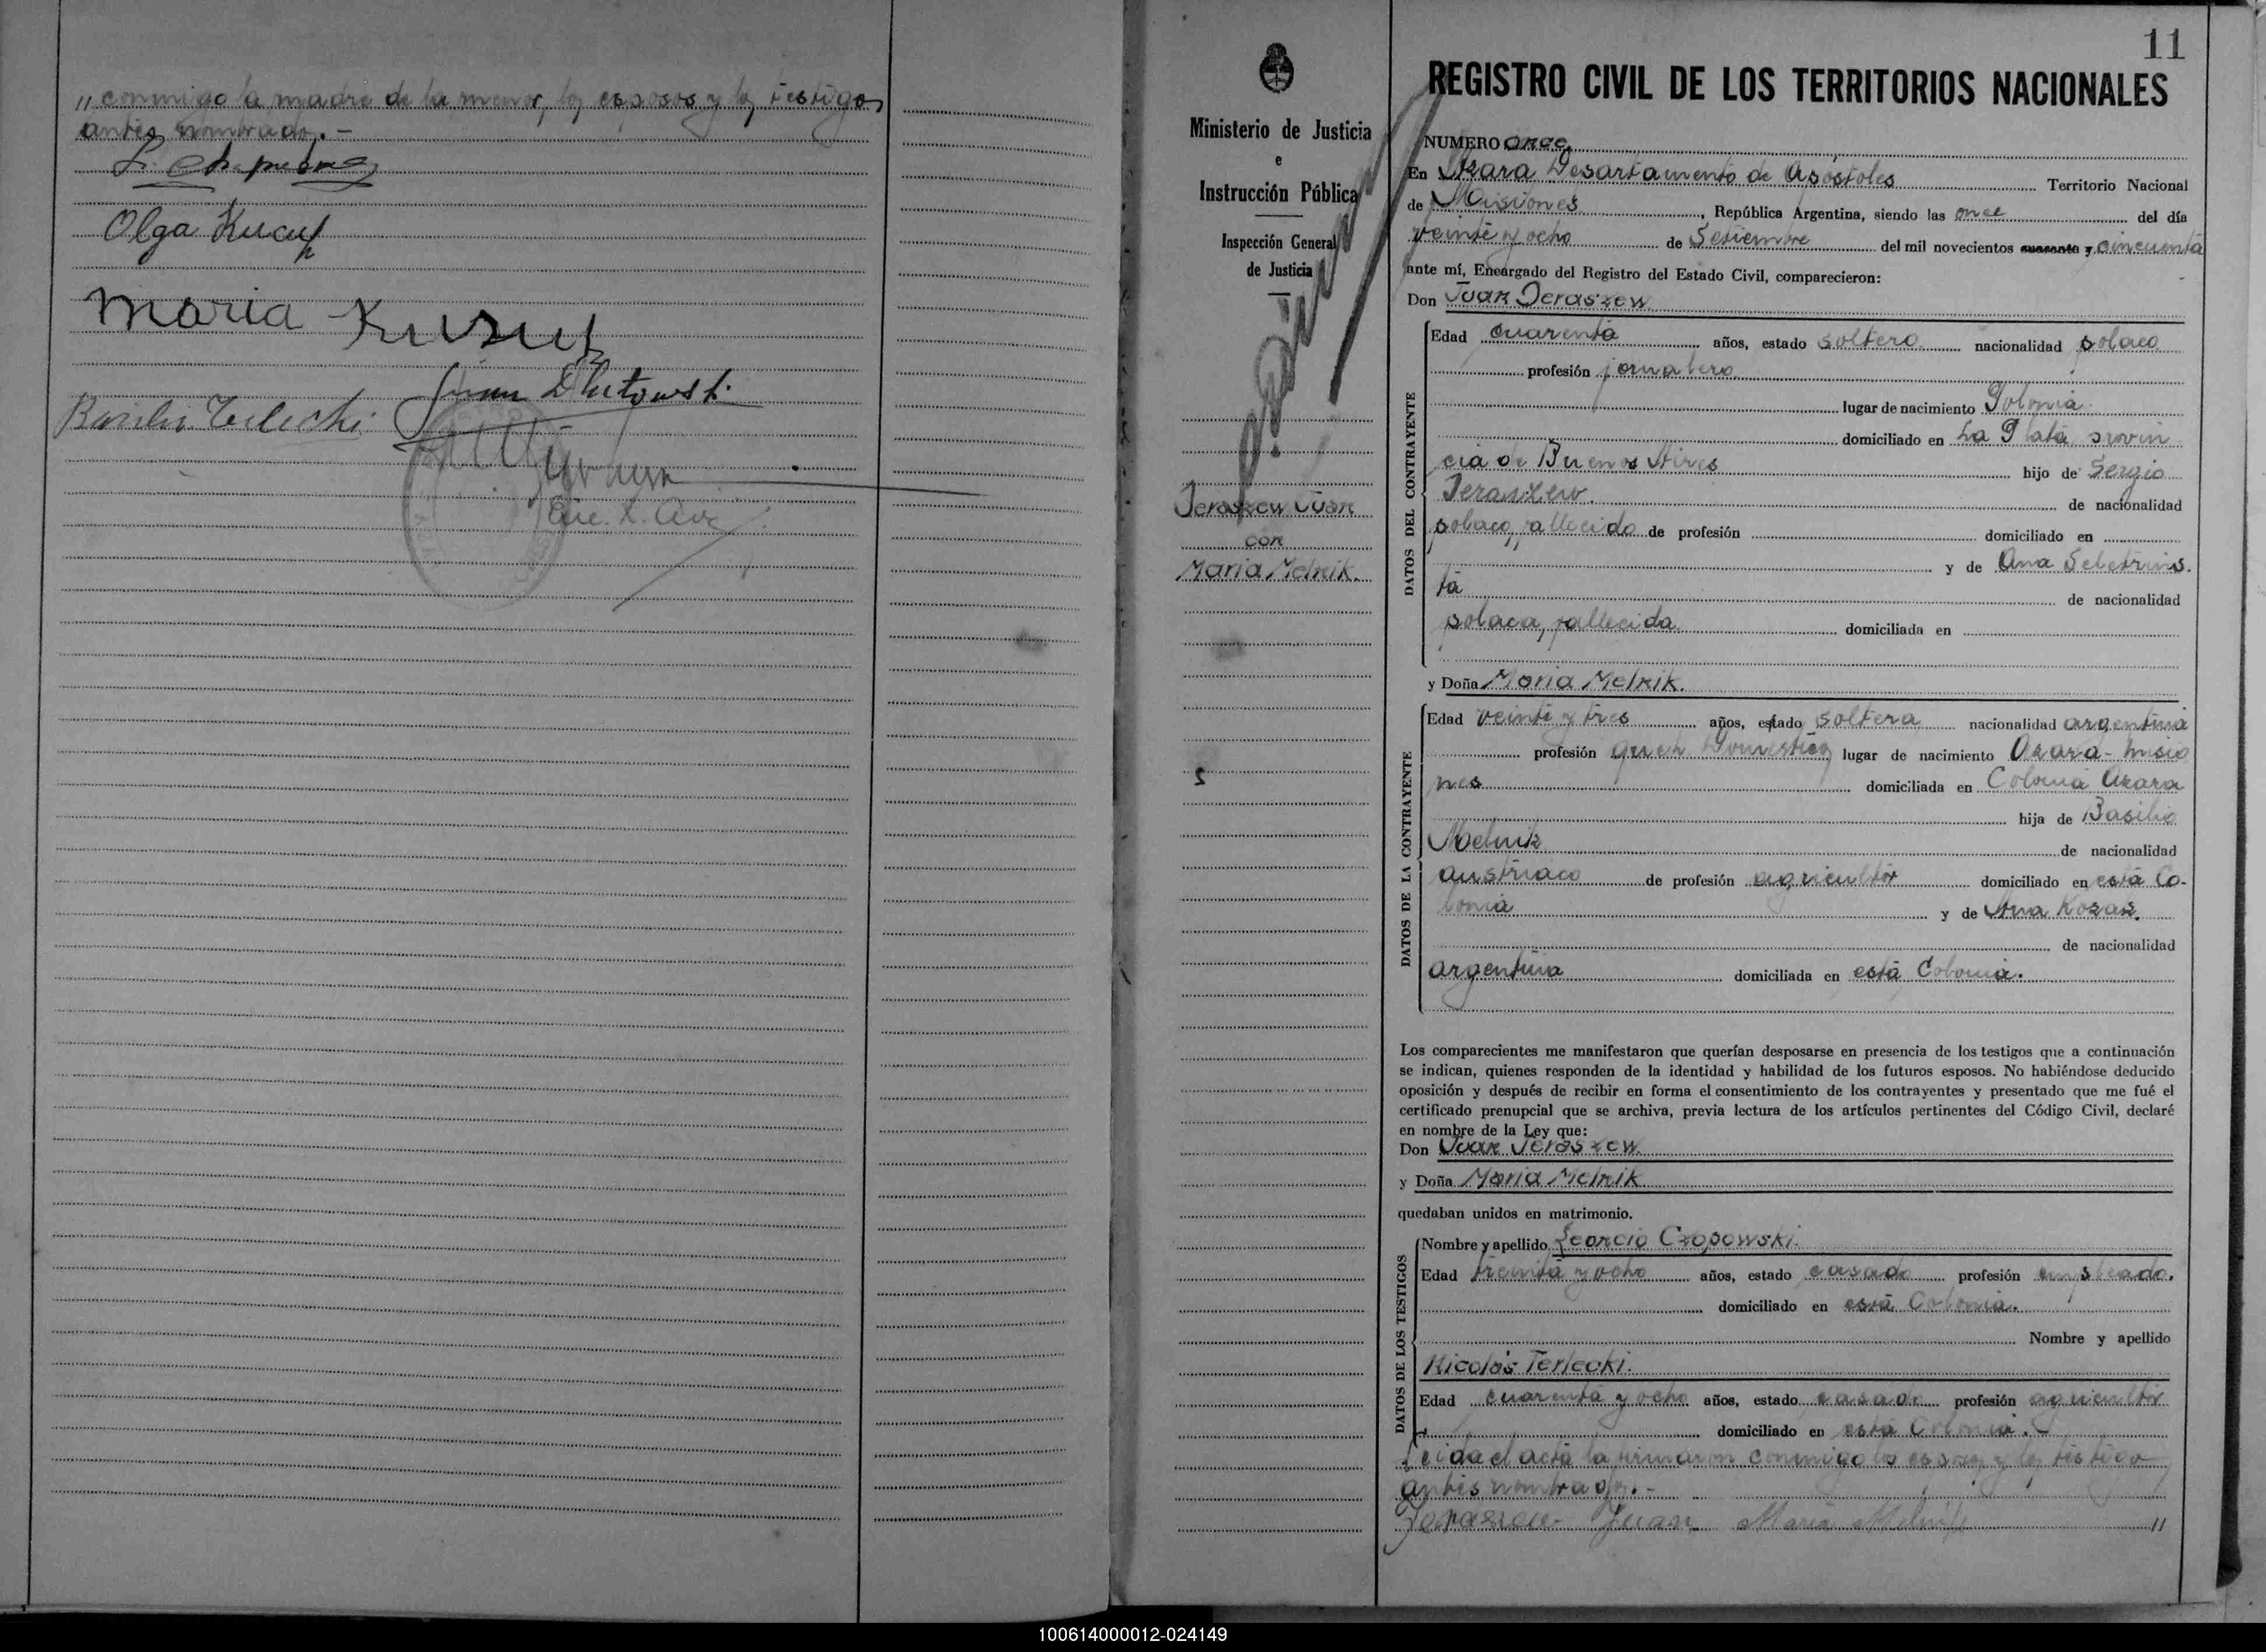 " conmigo la madre de la menor, los esposos y los testigos
antes nombrados.-
Olga Kucuf
Maria Kusuf
Juan Dlutowski
11
REGISTRO CIVIL DE LOS TERRITORIOS NACIONALES
Ministerio de Justicia
e
Instrucción Pública
Inspección General
de Justicia
Jeraszew Juan
con
Maria Melnik.
NUMERO once
En Azara Departamento de Apóstoles Territorio Nacional
de Misiones, República Argentina, siendo las once del día
veinte y ocho de Setiembre del mil novecientos cuarenta y cincuenta
ante mí, Encargado del Registro del Estado Civil, comparecieron:
Don Juan Jeraszew.
DATOS DEL CONTRAYENTE
Edad cuarenta años, estado soltero nacionalidad polaco
profesión jornalero
lugar de nacimiento Polonia
domiciliado en La Plata, provin
cia de Buenos Aires hijo de Sergio
Jeraszew. de nacionalidad
polaco, fallecido de profesión domiciliado en
y de Ana
ta de nacionalidad
polaca, fallecida. domiciliada en
y Doña Maria Melnik.
DATOS DE LA CONTRAYENTE
Edad veinte y tres años, estado soltera nacionalidad argentina
profesión queh. domésticos lugar de nacimiento Azara - Misio
nes domiciliada en Colonia Azara
hija de Basilio
Melnik de nacionalidad
austriaco de profesión agricultor domiciliado en esta Co-
lonia y de Ana Kozak.
de nacionalidad
argentina domiciliada en esta Colonia.
Los comparecientes me manifestaron que querían desposarse en presencia de los testigos que a continuación
se indican, quienes responden de la identidad y habilidad de los futuros esposos. No habiéndose deducido
oposición y después de recibir en forma el consentimiento de los contrayentes y presentado que me fué el
certificado prenupcial que se archiva, previa lectura de los artículos pertinentes del Código Civil, declaré
en nombre de la Ley que:
Don Juan Jeraszew.
y Doña Maria Melnik
quedaban unidos en matrimonio.
DATOS DE LOS TESTIGOS
Nombre y apellido Leoncio Czopowski.
Edad treinta y ocho años, estado casado profesión empleado.
domiciliado en esta Colonia.
Nombre y apellido
Nicolás Terlecki.
Edad cuarenta y ocho años, estado casado profesión agricultor
domiciliado en esta Colonia.
Leida el acta la firmaron conmigo los esposos y los testigos
antes nombrados.-
Jeraszew Juan Maria Melnik "
100614000012-024149